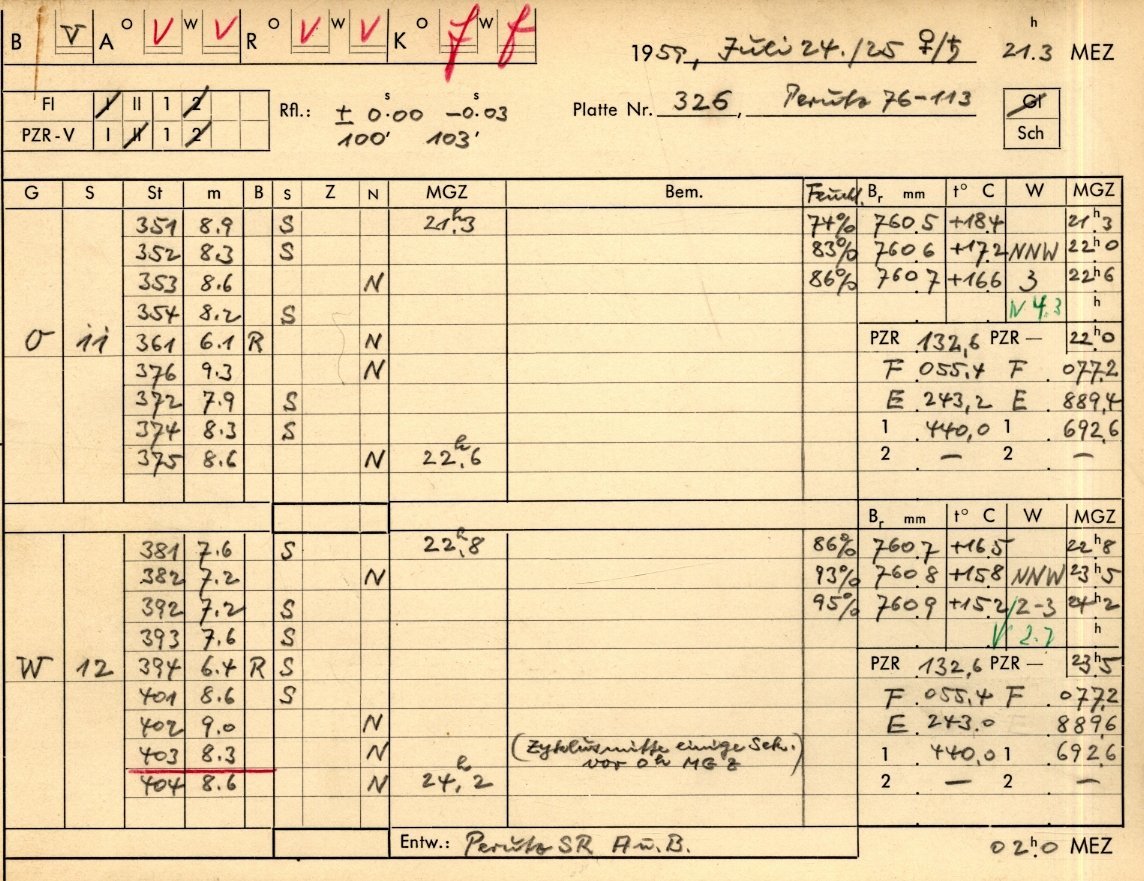 B V A O V W V R O V W V K O f W f 1959, Juli 24./25 ♀/♄ 21.3 h MEZ
Fl I II 1 2 Rfl.: ± 0.00 s −0.03 s Platte Nr. 326, Perutz 76-113 Gl
PZR-V I II 1 2 100' 103' Sch
G S St m B S Z N MGZ Bem. Feucht. Br mm t° C W MGZ
351 8.9 S 21h.3 74% 760.5 +18.4 21h3
352 8.3 S 83% 760.6 +17.2 NNW 22h0
353 8.6 N 86% 760.7 +16.6 3 22h6
354 8.2 S N 4.3 h
O 11 361 6.1 R N PZR 132,6 PZR — 22h0
376 9.3 N F 055.4 F 077.2
372 7.9 S E 243,2 E 889,4
374 8.3 S 1 440,0 1 692,6
375 8.6 N 22h.6 2 — 2 —
Br mm t° C W MGZ
381 7.6 S 22h.8 86% 760.7 +16.5 22h8
382 7.2 N 93% 760.8 +15.8 NNW 23h5
392 7.2 S 95% 760.9 +15.2 2-3 24h2
393 7.6 S 2.7 h
W 12 394 6.4 R S PZR 132,6 PZR — 23h5
401 8.6 S F 055.4 F 077.2
402 9.0 N E 243.0 889,6
403 8.3 N (Zyklusmitte einige Sek. 1 440,0 1 692,6
vor 0h MGZ)
404 8.6 N 24h,2 2 — 2 —
Entw.: Perutz SR A u. B. 02h.0 MEZ